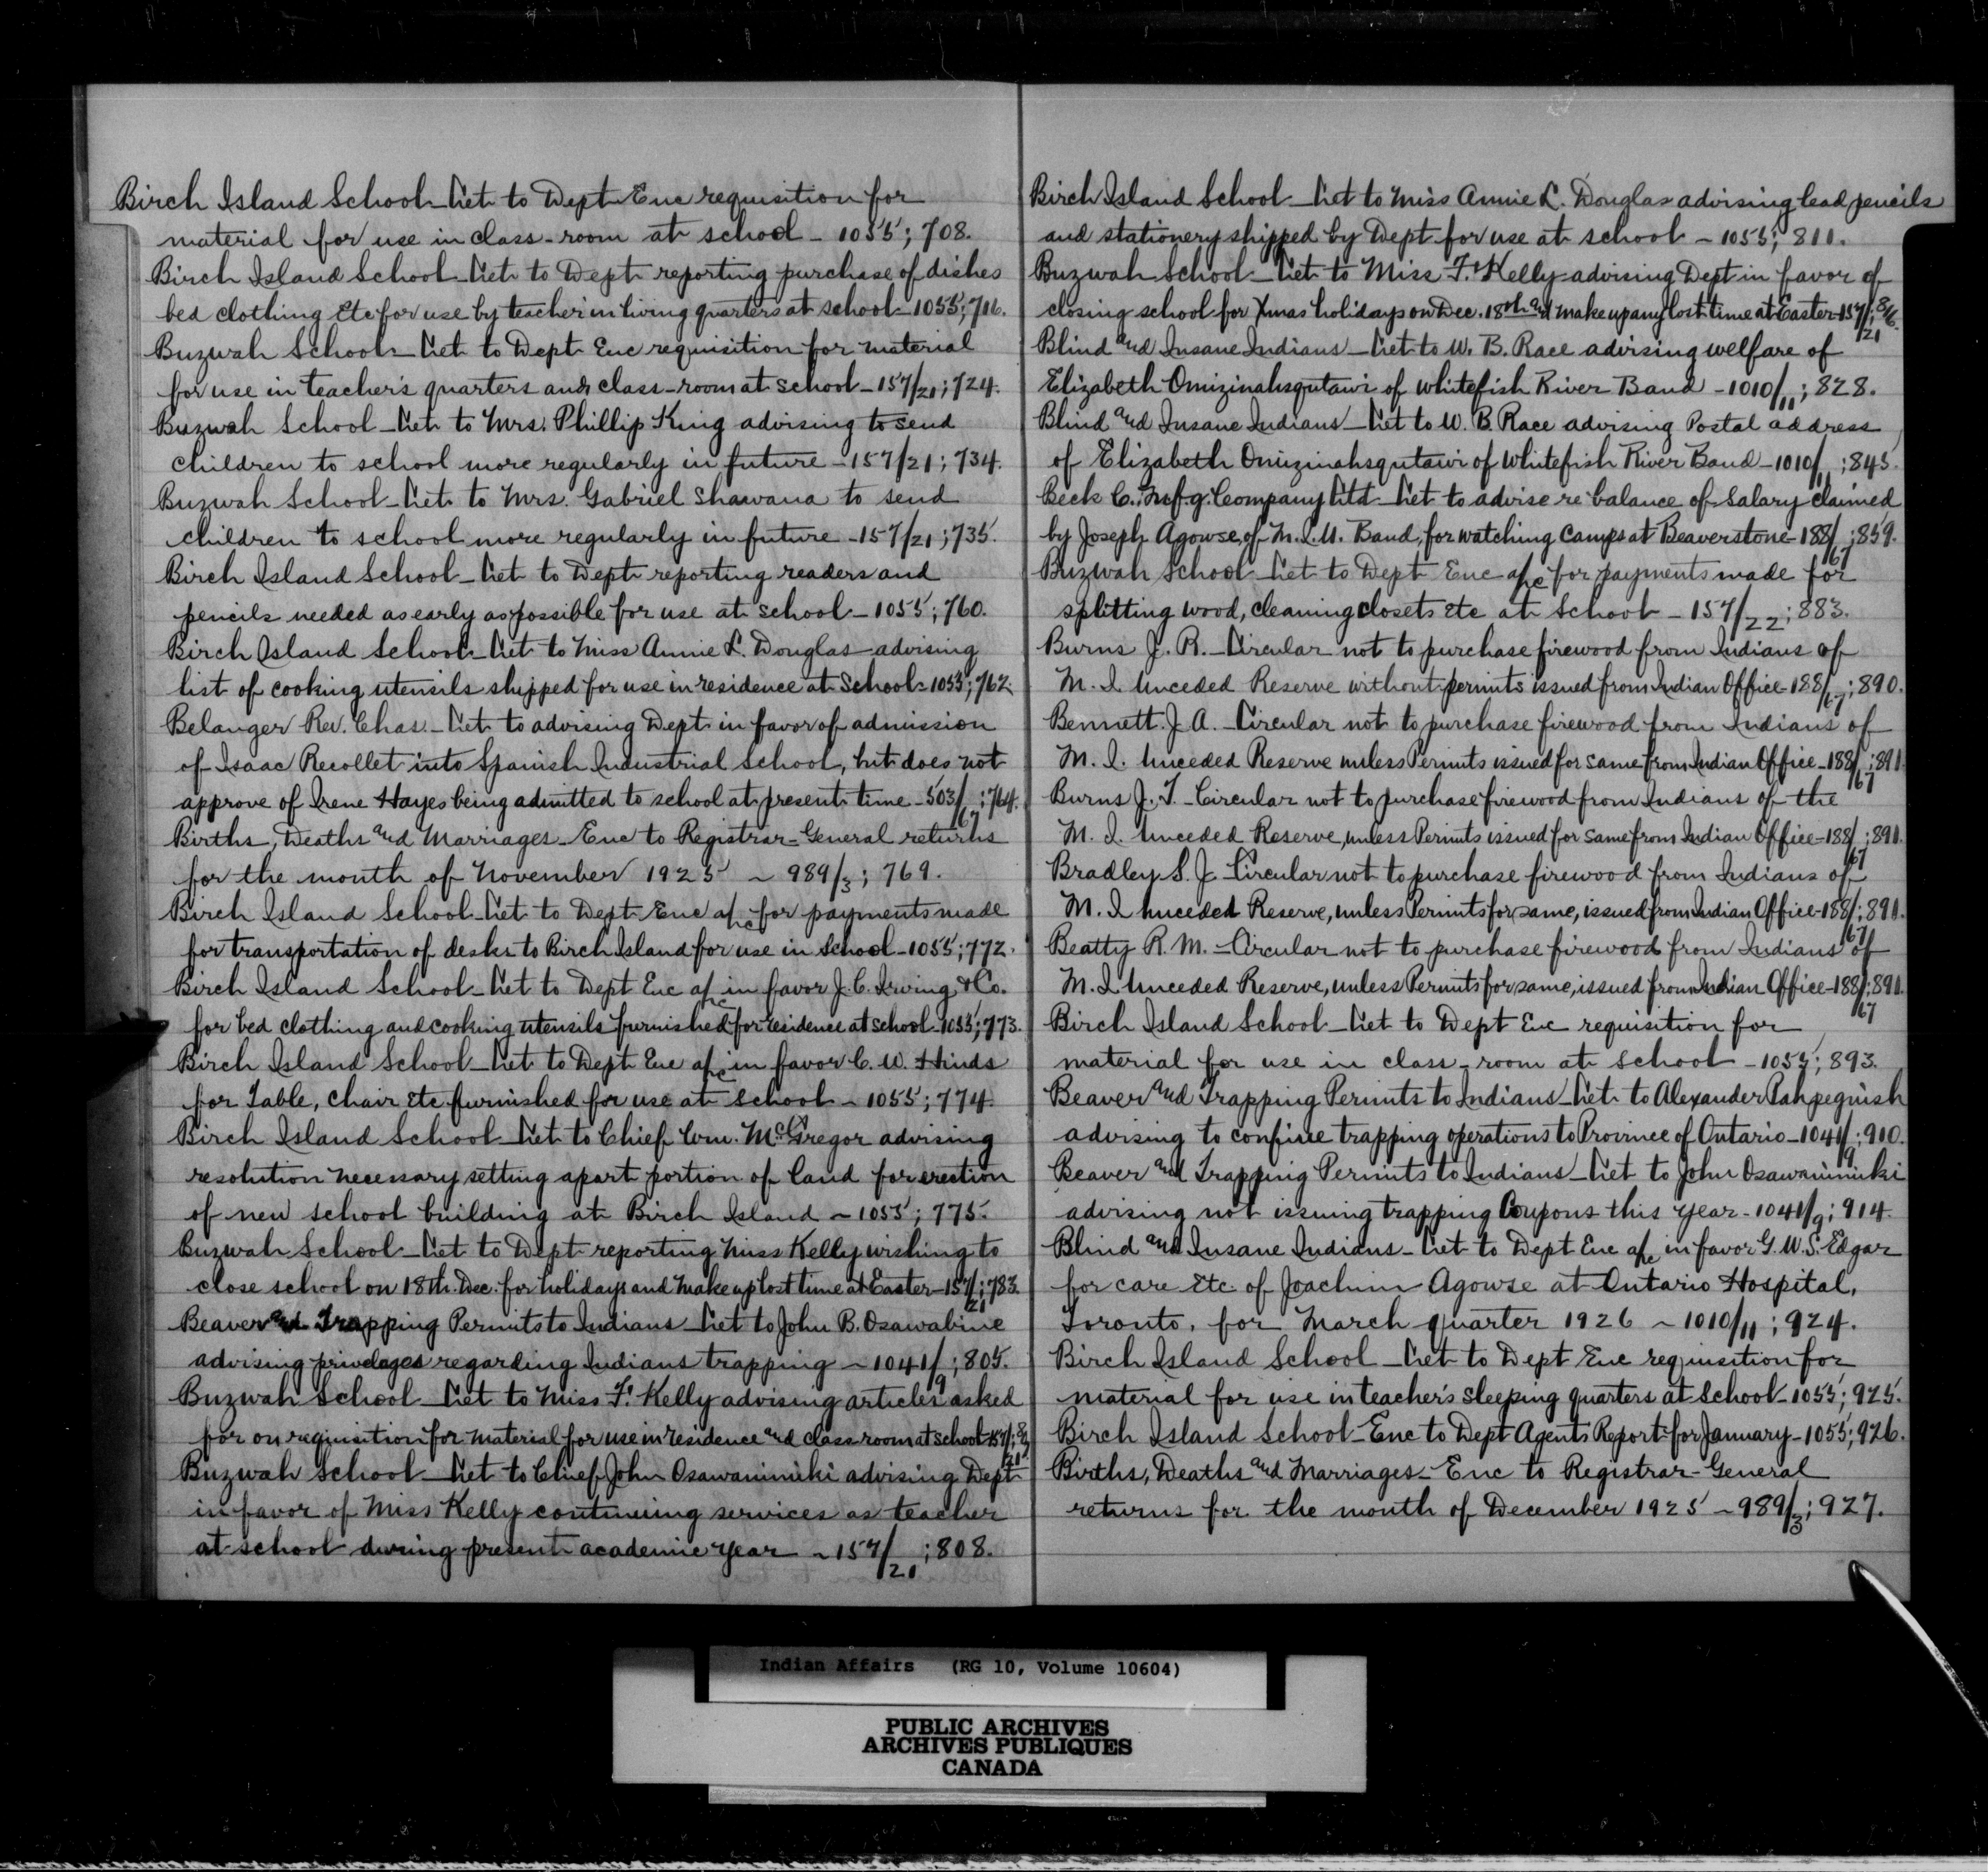 Birch Island School - Let to Dept Enc requisition for
material for use in class-room at school - 1055; 708.
Birch Island School - Let to Dept reporting purchase of dishes
bed clothing Etc for use by teacher in living quarters at school - 1055; 716.
Buzwah School - Let to Dept Enc requisition for material
for use in teacher's quarters and class-room at school - 157/21; 724.
Buzwah School - Let to Mrs. Phillip King advising to send
children to school more regularly in future - 157/21; 734.
Buzwah School - Let to Mrs. Gabriel Shawana to send
children to school more regularly in future - 157/21; 735.
Birch Island School - Let to Dept reporting readers and
pencils needed as early as possible for use at school - 1055; 760.
Birch Island School - Let to Miss Annie L. Douglas advising
list of cooking utensils shipped for use in residence at School - 1055; 762.
Belanger Rev. Chas. - Let to advising Dept in favor of admission
of Isaac Recollet into Spanish Industrial School, but does not
approve of Irene Hayes being admitted to school at present time - 503/67; 764.
Births, Deaths and Marriages - Enc to Registrar-General returns
for the month of November 1925 - 989/3; 769.
Birch Island School - Let to Dept Enc a/c for payments made
for transportation of desks to Birch Island for use in School - 1055; 772.
Birch Island School - Let to Dept Enc a/c in favor J. C. Irving & Co.
for bed clothing and cooking utensils furnished for residence at school - 1055; 773.
Birch Island School - Let to Dept Enc a/c in favor C. W. Hinds
for Table, Chair Etc furnished for use at School - 1055; 774.
Birch Island School - Let to Chief Wm. McGregor advising
resolution necessary setting apart portion of land for erection
of new school building at Birch Island - 1055; 775.
Buzwah School - Let to Dept reporting Miss Kelly wishing to
close school on 18th. Dec. for holidays and make up lost time at Easter - 157/21; 783.
Beaver and Trapping Permits to Indians - Let to John B. Osawabine
advising privelages regarding Indians trapping - 1041/9; 805.
Buzwah School - Let to Miss F. Kelly advising articles asked
for on requisition for material for use in residence and class room at school - 157/21;
Buzwah School - Let to Chief John Osawanimiki advising Dept
in favor of Miss Kelly continuing services as teacher
at school during present academic year - 157/21; 808.
Birch Island School - Let to Miss Annie L. Douglas advising lead pencils
and stationery shipped by Dept for use at school - 1055; 811.
Buzwah School - Let to Miss F. Kelly advising Dept in favor of
closing school for Xmas holidays on Dec. 18th and make up any lost time at Easter - 157/21; 816.
Blind and Insane Indians - Let to W. B. Race advising welfare of
Elizabeth Omizinahsqutawi of Whitefish River Band - 1010/11; 828.
Blind and Insane Indians - Let to W. B. Race advising Postal address
of Elizabeth Omizinahsqutawi of Whitefish River Band - 1010/11; 845.
Beck C. Mfg. Company Ltd - Let to advise re balance of Salary claimed
by Joseph Agowse, of M.I.U. Band, for watching Camps at Beaverstone - 188/67; 859.
Buzwah School - Let to Dept Enc a/c for payments made for
splitting wood, cleaning closets Etc at School - 157/22; 883.
Burns J. R. - Circular not to purchase firewood from Indians of
M. I. Unceded Reserve without permits issued from Indian Office - 188/67; 890.
Bennett. J A. - Circular not to purchase firewood from Indians of
M. I. Unceded Reserve unless Permits issued for same from Indian Office - 188/67; 891.
Burns J. T. - Circular not to purchase firewood from Indians of the
M. I. Unceded Reserve, unless Permits issued for same from Indian Office - 188/67; 891.
Bradley S. J. Circular not to purchase firewood from Indians of
M. I. Unceded Reserve, unless Permits for same, issued from Indian Office - 188/67; 891.
Beatty R. M. - Circular not to purchase firewood from Indians of
M. I. Unceded Reserve, unless Permits for same, issued from Indian Office - 188/67; 891.
Birch Island School - Let to Dept Enc requisition for
material for use in class-room at School - 1055; 893.
Beaver and Trapping Permits to Indians - Let to Alexander Pahpeguish
advising to confine trapping operations to Province of Ontario - 1041/9; 910.
Beaver and Trapping Permits to Indians - Let to John Osawanimiki
advising not issuing trapping Coupons this year - 1041/9; 914.
Blind and Insane Indians - Let to Dept Enc a/c in favor G. W. S. Edgar
for care Etc. of Joachim Agowse at Ontario Hospital,
Toronto, for March quarter 1926 - 1010/11; 924.
Birch Island School - Let to Dept Enc requisition for
material for use in teacher's sleeping quarters at School - 1055; 925.
Birch Island School - Enc to Dept Agents Report for January - 1055; 926.
Births, Deaths and Marriages - Enc to Registrar-General
returns for the month of December 1925 - 989/3; 927.
Indian Affairs (RG 10, Volume 10604)
PUBLIC ARCHIVES
ARCHIVES PUBLIQUES
CANADA